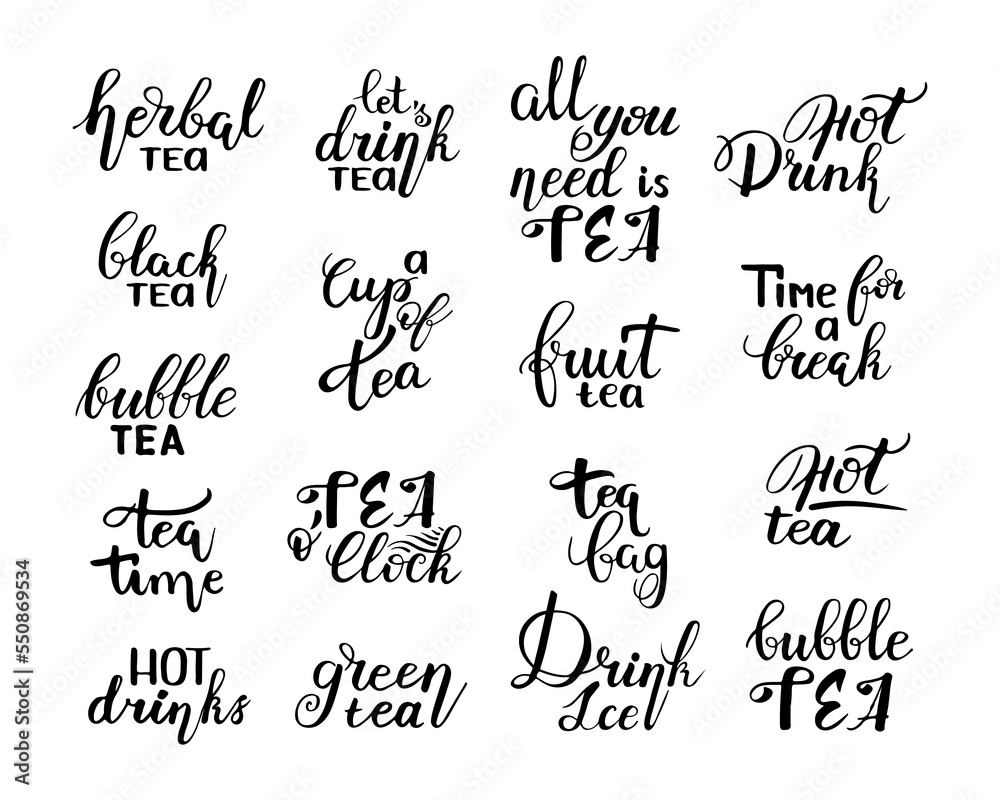 herbal
TEA
black
TEA
bubble
TEA
tea
time
HOT
drinks
let's
drink
TEA
a
Cup
of
tea
TEA
O'Clock
green
tea
all you
need is
TEA
fruit
tea
tea
bag
Drink
Ice
Hot
Drink
Time for
a
break
Hot
tea
bubble
TEA
Adobe Stock | #550869534
Adobe Stock